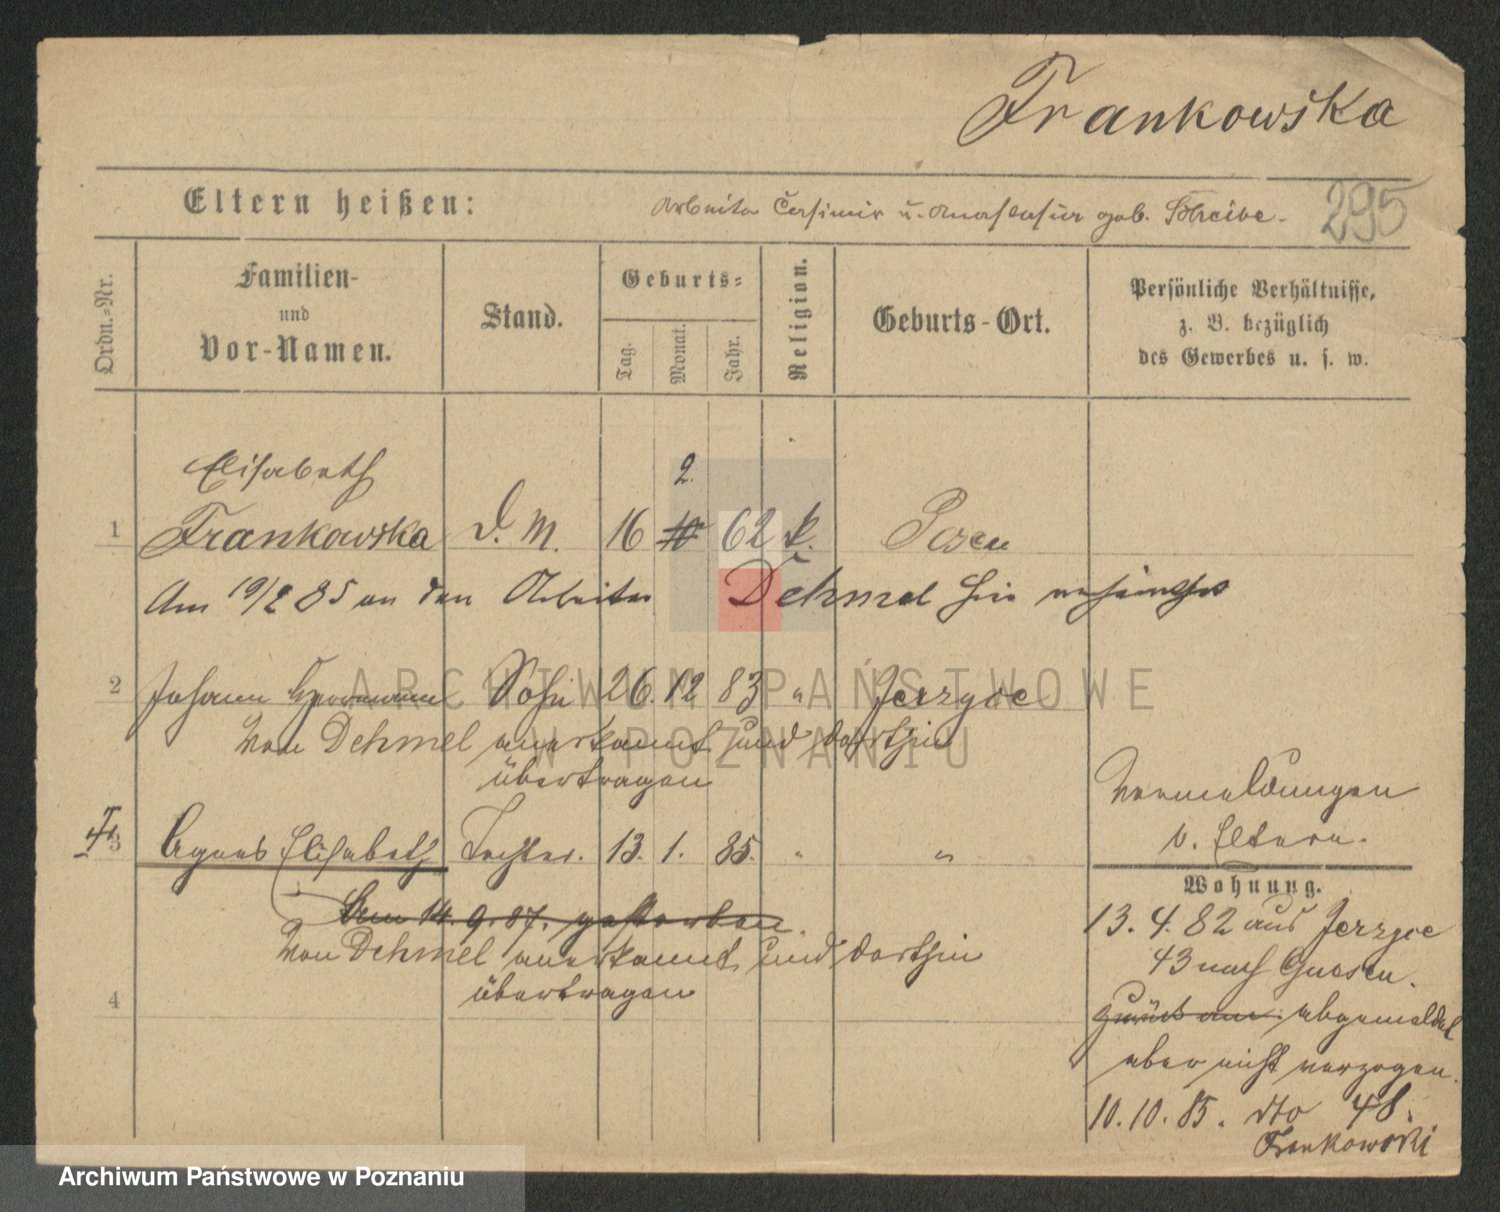 Frankowska
Eltern heißen: Arbeiter Casimir u. Anastasia geb. Schreibe. 295
Ordn.-Nr.
Familien- und Vor-Namen.
Stand.
Geburts-
Tag. Monat. Jahr.
Religion.
Geburts-Ort.
Persönliche Verhältnisse, z. B. bezüglich des Gewerbes u. s. w.
Elisabeth 2.
1 Frankowska D. M. 16 10 62 k. Posen
Am 19/2 85 an den Arbeiter Dehmel hier verheirathet
2 Johann Sohn 26. 12 83 " Jerzyce
Von Dehmel anerkannt und dorthin
übertragen
3 Agnes Elisabeth Tochter. 13. 1. 85. " "
Am 14. 9. 87. gestorben.
Von Dehmel anerkannt und dorthin
übertragen
4
Vermeldungen
v. Eltern.
Wohnung.
13. 4. 82 aus Jerzyce
43 nach Gnesen.
Zurück abgemeldet
aber nicht verzogen.
10. 10. 85. dto 48.
Frankowski
ARCHIWUM PAŃSTWOWE
W POZNANIU
Archiwum Państwowe w Poznaniu